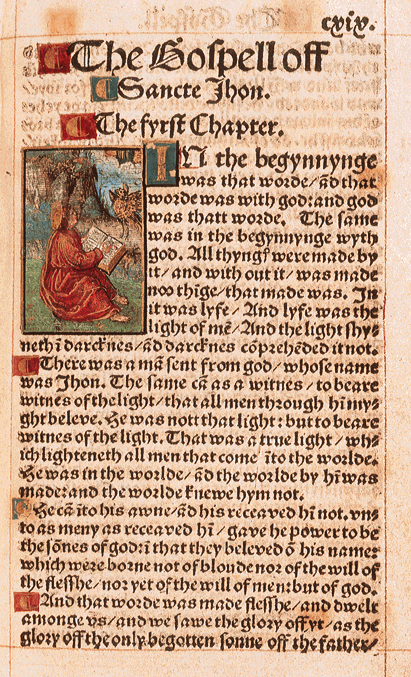 cxix.
The Gospell off
Sancte Jhon.
The fyrst Chapter.
IN the begynnynge
was that worde/ ād that
worde was with god: and god
was thatt worde. The same
was in the begynnynge wyth
god. All thyngs were made by
it/ and with out it/ was made
noo thīge/ that made was. In
it was lyfe/ And lyfe was the
light of mē/ And the light shy-
neth ī darcknes/ ād darcknes cōprehēded it not.
There was a mā sent from god/ whose name
was Jhon. The same cā as a witnes/ to beare
witnes of the light/ that all men through hī my-
ght beleve. He was nott that light: but to beare
witnes of the light. That was a true light/ wh-
ich lighteneth all men that come īto the worlde.
He was in the worlde/ ād the worlde by hī was
made: and the worlde knewe hym not.
He cā īto his awne/ ād his receaved hī not. vn-
to as meny as receaved hī/ gave he power to be
the sōnes of god: ī that they beleved ō his name:
which were borne not of bloude nor of the will of
the flesshe/ nor yet of the will of men: but of god.
And that worde was made flesshe/ and dwelt
amonge vs/ and we sawe the glory off yt/ as the
glory off the only begotten sonne off the father/